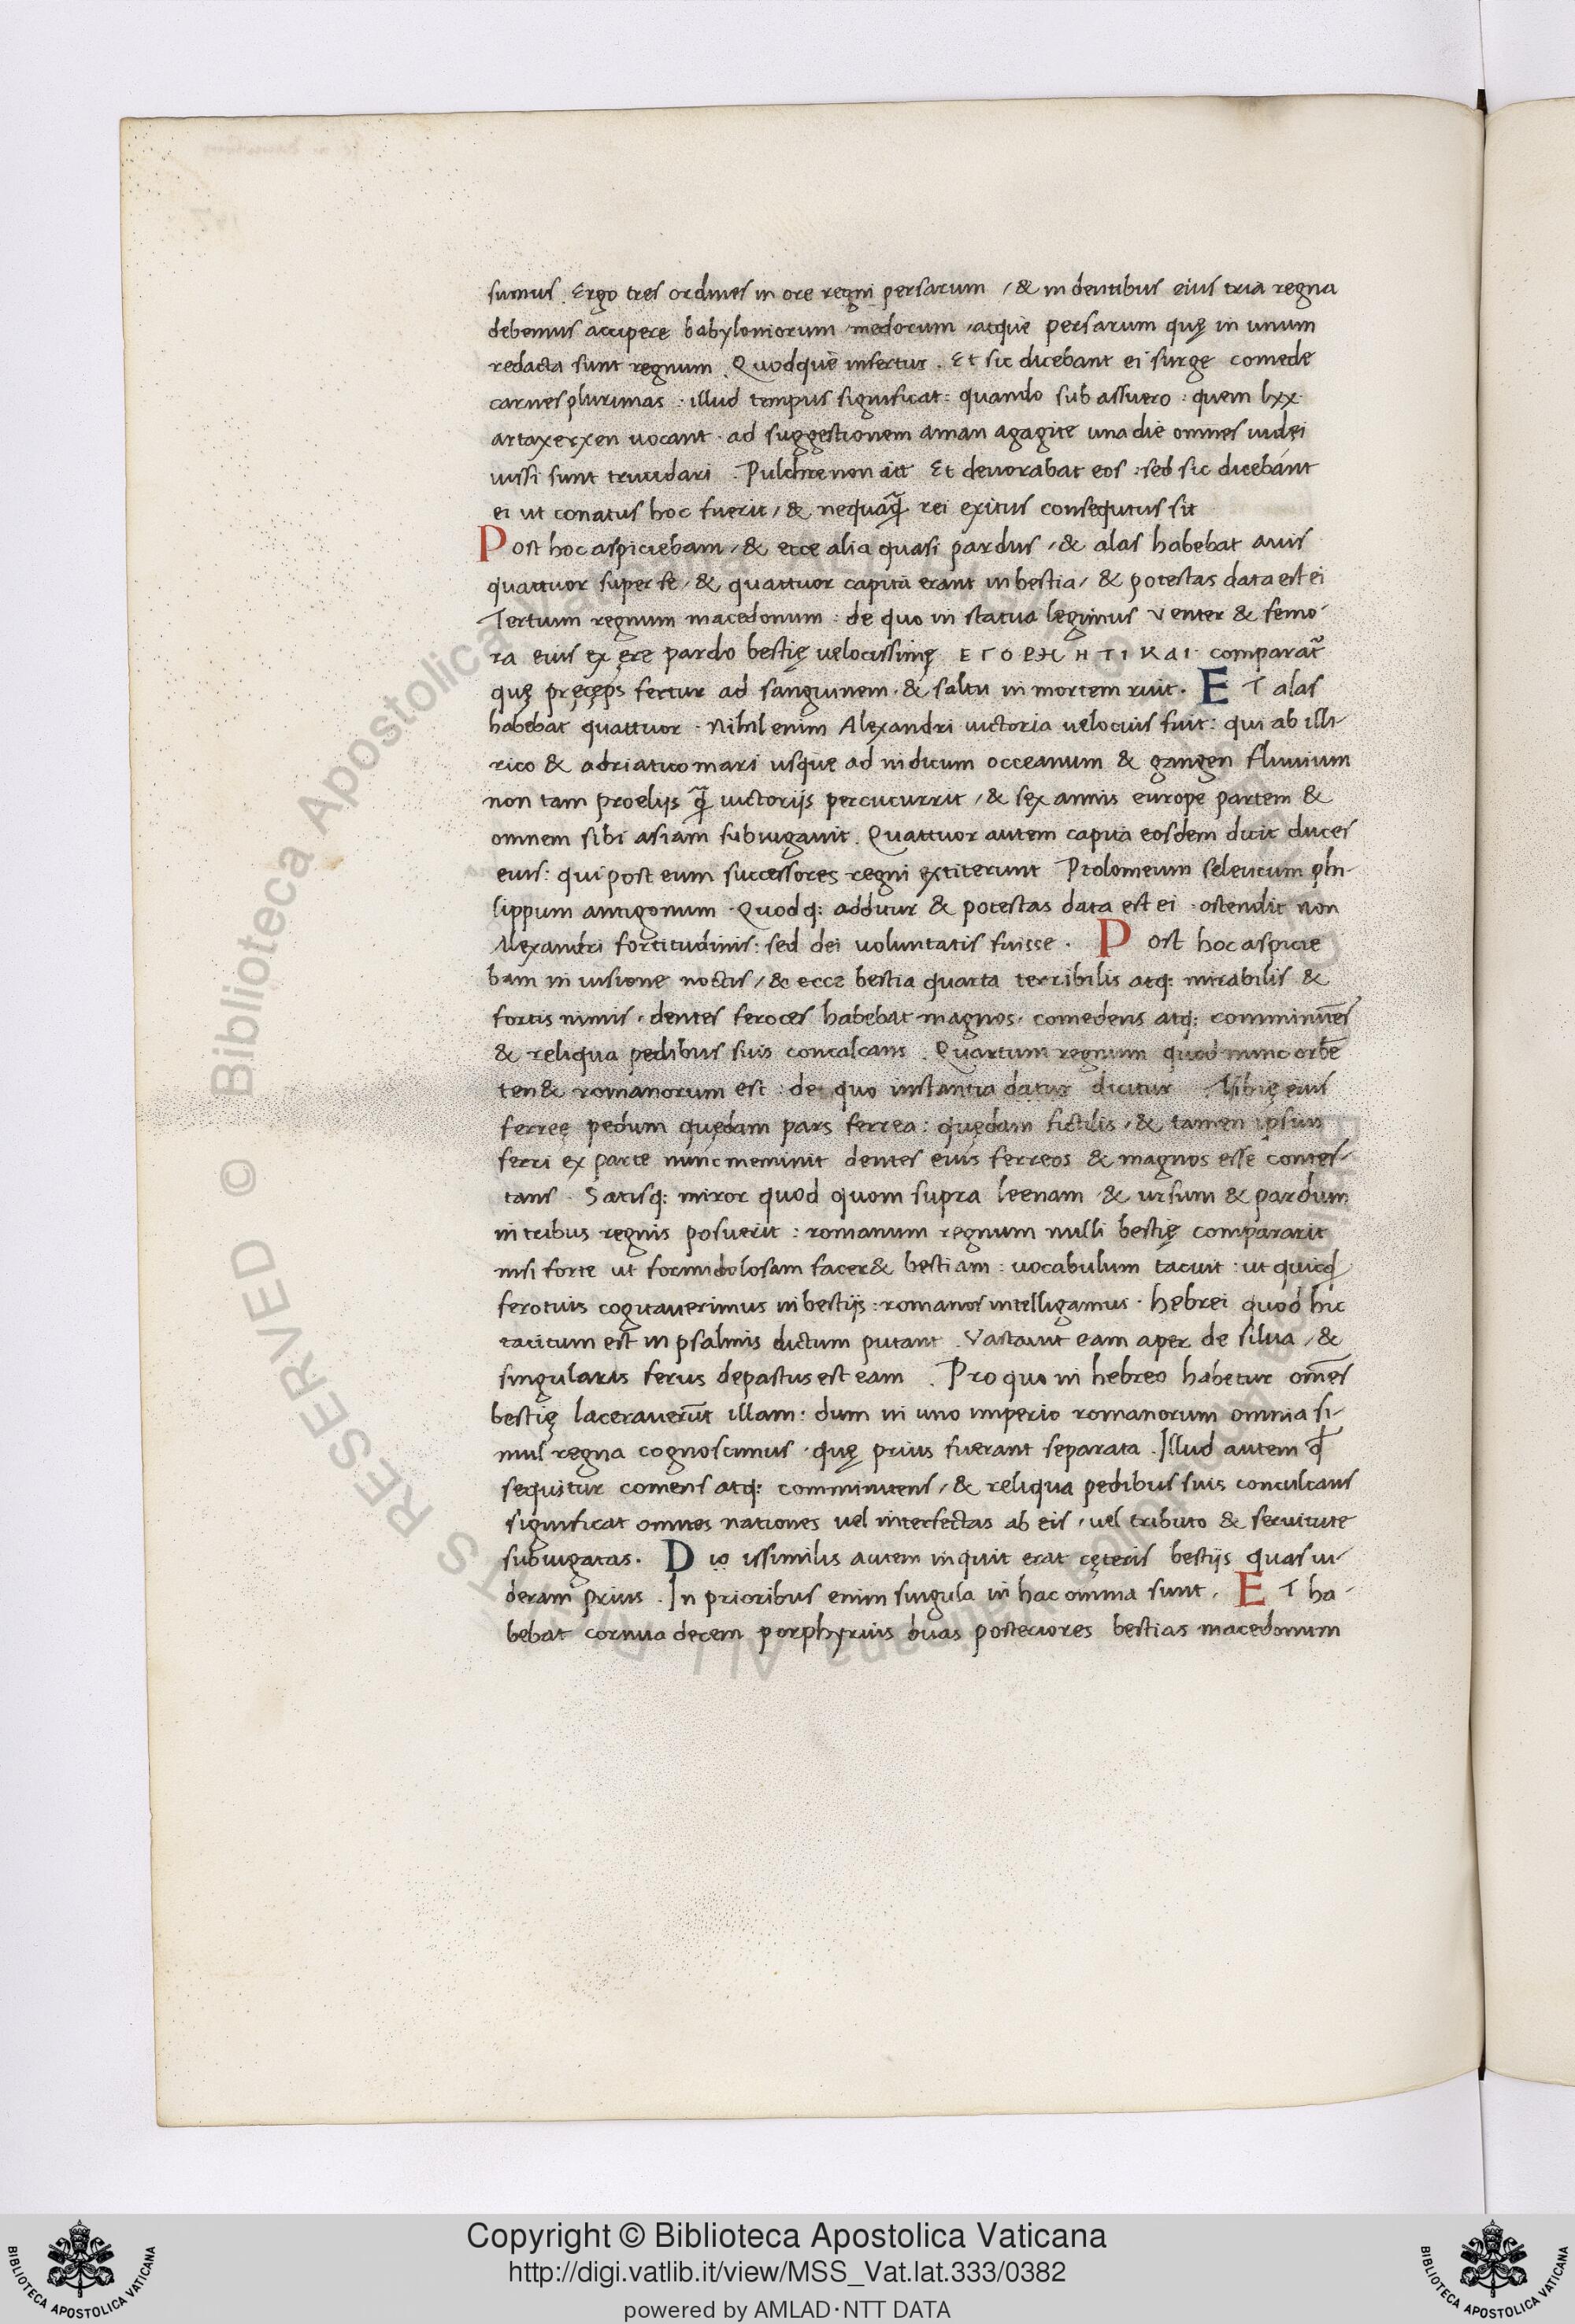 sumus . Ergo tres ordines in ore regni persarum / & in dentibus eius tria regna
debemus accipere babyloniorum medorum atque persarum quę in unum
redacta sunt regnum . Quodque infertur . Et sic dicebant ei surge comede
carnes plurimas . illud tempus significat : quando sub assuero : quem lxx
artaxerxen uocant . ad suggestionem aman agagite una die omnes iudei
iussi sunt trucidari . Pulchre non ait Et deuorabat eos : sed sic dicebant
ei ut conatus hoc fuerit / & nequaq̃ rei exitus consequtus sit
Post hoc aspiciebam / & ecce alia quasi pardus / & alas habebat auis
quattuor super se / & quattuor capita erant in bestia / & potestas data est ei
Tertium regnum macedonum : de quo in statua legimus Venter & femo-
ra eius ex ęre pardo bestię uelocissimę comparat̃
quę pręcęps fertur ad sanguinem . & saltu in mortem ruit . ET alas
habebat quattuor . Nihil enim Alexandri uictoria uelocius fuit : qui ab illi-
rico & adriatico mari usque ad indicum occeanum & gangen fluuium
non tam proelijs q̃ uictorijs percucurrit / & sex annis europe partem &
omnem sibi asiam subiugauit . Quattuor autem capita eosdem dicit duces
eius : qui post eum successores regni extiterunt Ptolomeum seleucum phi-
lippum antigonum . Quodq: additur & potestas data est ei . ostendit non
Alexandri fortitudinis : sed dei uoluntatis fuisse . Post hoc aspicie
bam in uisione noctis / & ecce bestia quarta terribilis atq: mirabilis &
fortis nimis . dentes feroces habebat magnos . comedens atq: comminuẽs
& reliqua pedibus suis concalcans . Quartum regnum quod nunc orbẽ
ten& romanorum est : de quo instantia datur dicitur . Tibię eius
ferreę pedum quędam pars ferrea : quędam fictilis . & tamen ipsius
ferri ex parte nunc meminit dentes eius ferreos & magnos esse contes-
tans . Satisq: miror quod quom supra leenam & ursum & pardum
in tribus regnis posuerit : romanum regnum nulli bestię compararit
nisi forte ut formidolosam facer& bestiam : uocabulum tacuit : ut quicq̃
ferotius cogitauerimus in bestijs : romanos intelligamus . hebrei quod hic
tacitum est in psalmis dictum putant . Vastauit eam aper de silua / &
singularis ferus depastus est eam . Pro quo in hebreo habetur om̃es
bestię lacerauerũt illam : dum in uno imperio romanorum omnia si-
mul regna cognoscimus . quę prius fuerant separata . Illud autem q̃
sequitur comens atq: comminuens / & reliqua pedibus suis conculcans
significat omnes nationes uel interfectas ab eis / uel tributo & seruitute
subiugatas . D issimilis autem inquit erat cęteris bestijs quas ui-
deram prius . In prioribus enim singula in hac omnia sunt . ET ha-
bebat cornua decem porphyrius duas posteriores bestias macedonum
© Biblioteca Apostolica Vaticana ALL RIGHTS RESERVED
Copyright © Biblioteca Apostolica Vaticana
http://digi.vatlib.it/view/MSS_Vat.lat.333/0382
powered by AMLAD·NTT DATA
BIBLIOTECA APOSTOLICA VATICANA
BIBLIOTECA APOSTOLICA VATICANA